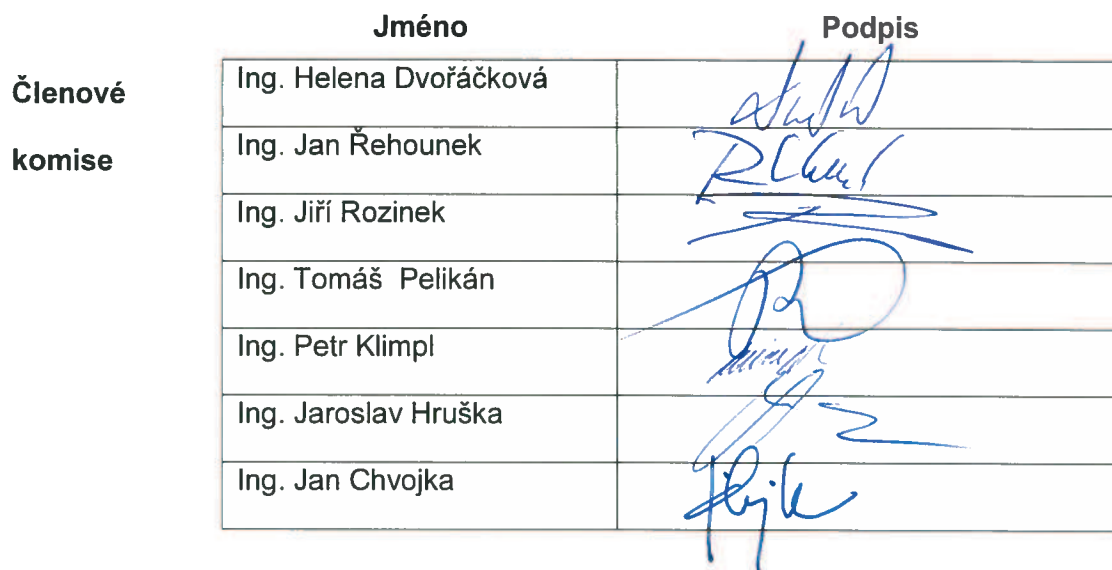 Jméno Podpis
Členové
komise
Ing. Helena Dvořáčková
Ing. Jan Řehounek
Ing. Jiří Rozinek
Ing. Tomáš Pelikán
Ing. Petr Klimpl
Ing. Jaroslav Hruška
Ing. Jan Chvojka